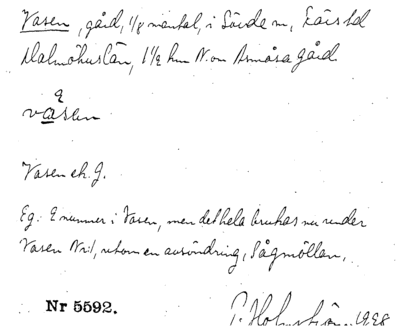 Vasen, gård, 1/8 mantal, i Sövde sn, Färs hd
Malmöhus län, 1 1/2 km N. om Assmåsa gård
ɐ
vasen
Vasen ek. J.
Eg. 2 nummer i Vasen, men det hela brukas nu under
Vasen Nr 1, utom en avsöndring, Sågmöllan.
Nr 5592.
P. Holmström 1928